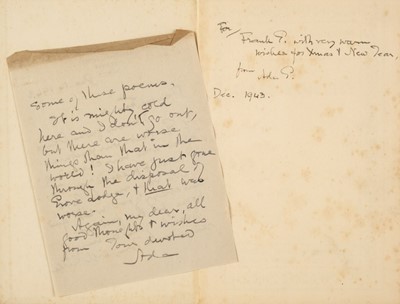 some of these poems.
It is mighty cold
here and I don't go out,
but there are worse
things than that in the
world! I have just gone
through the disposal of
Grove Lodge, & that was
worse.
Again, my dear, all
good thoughts & wishes
from Your devoted
Ada
For
Frank T. with very warm
wishes for Xmas & New Year,
from
Ada
Dec. 1943.